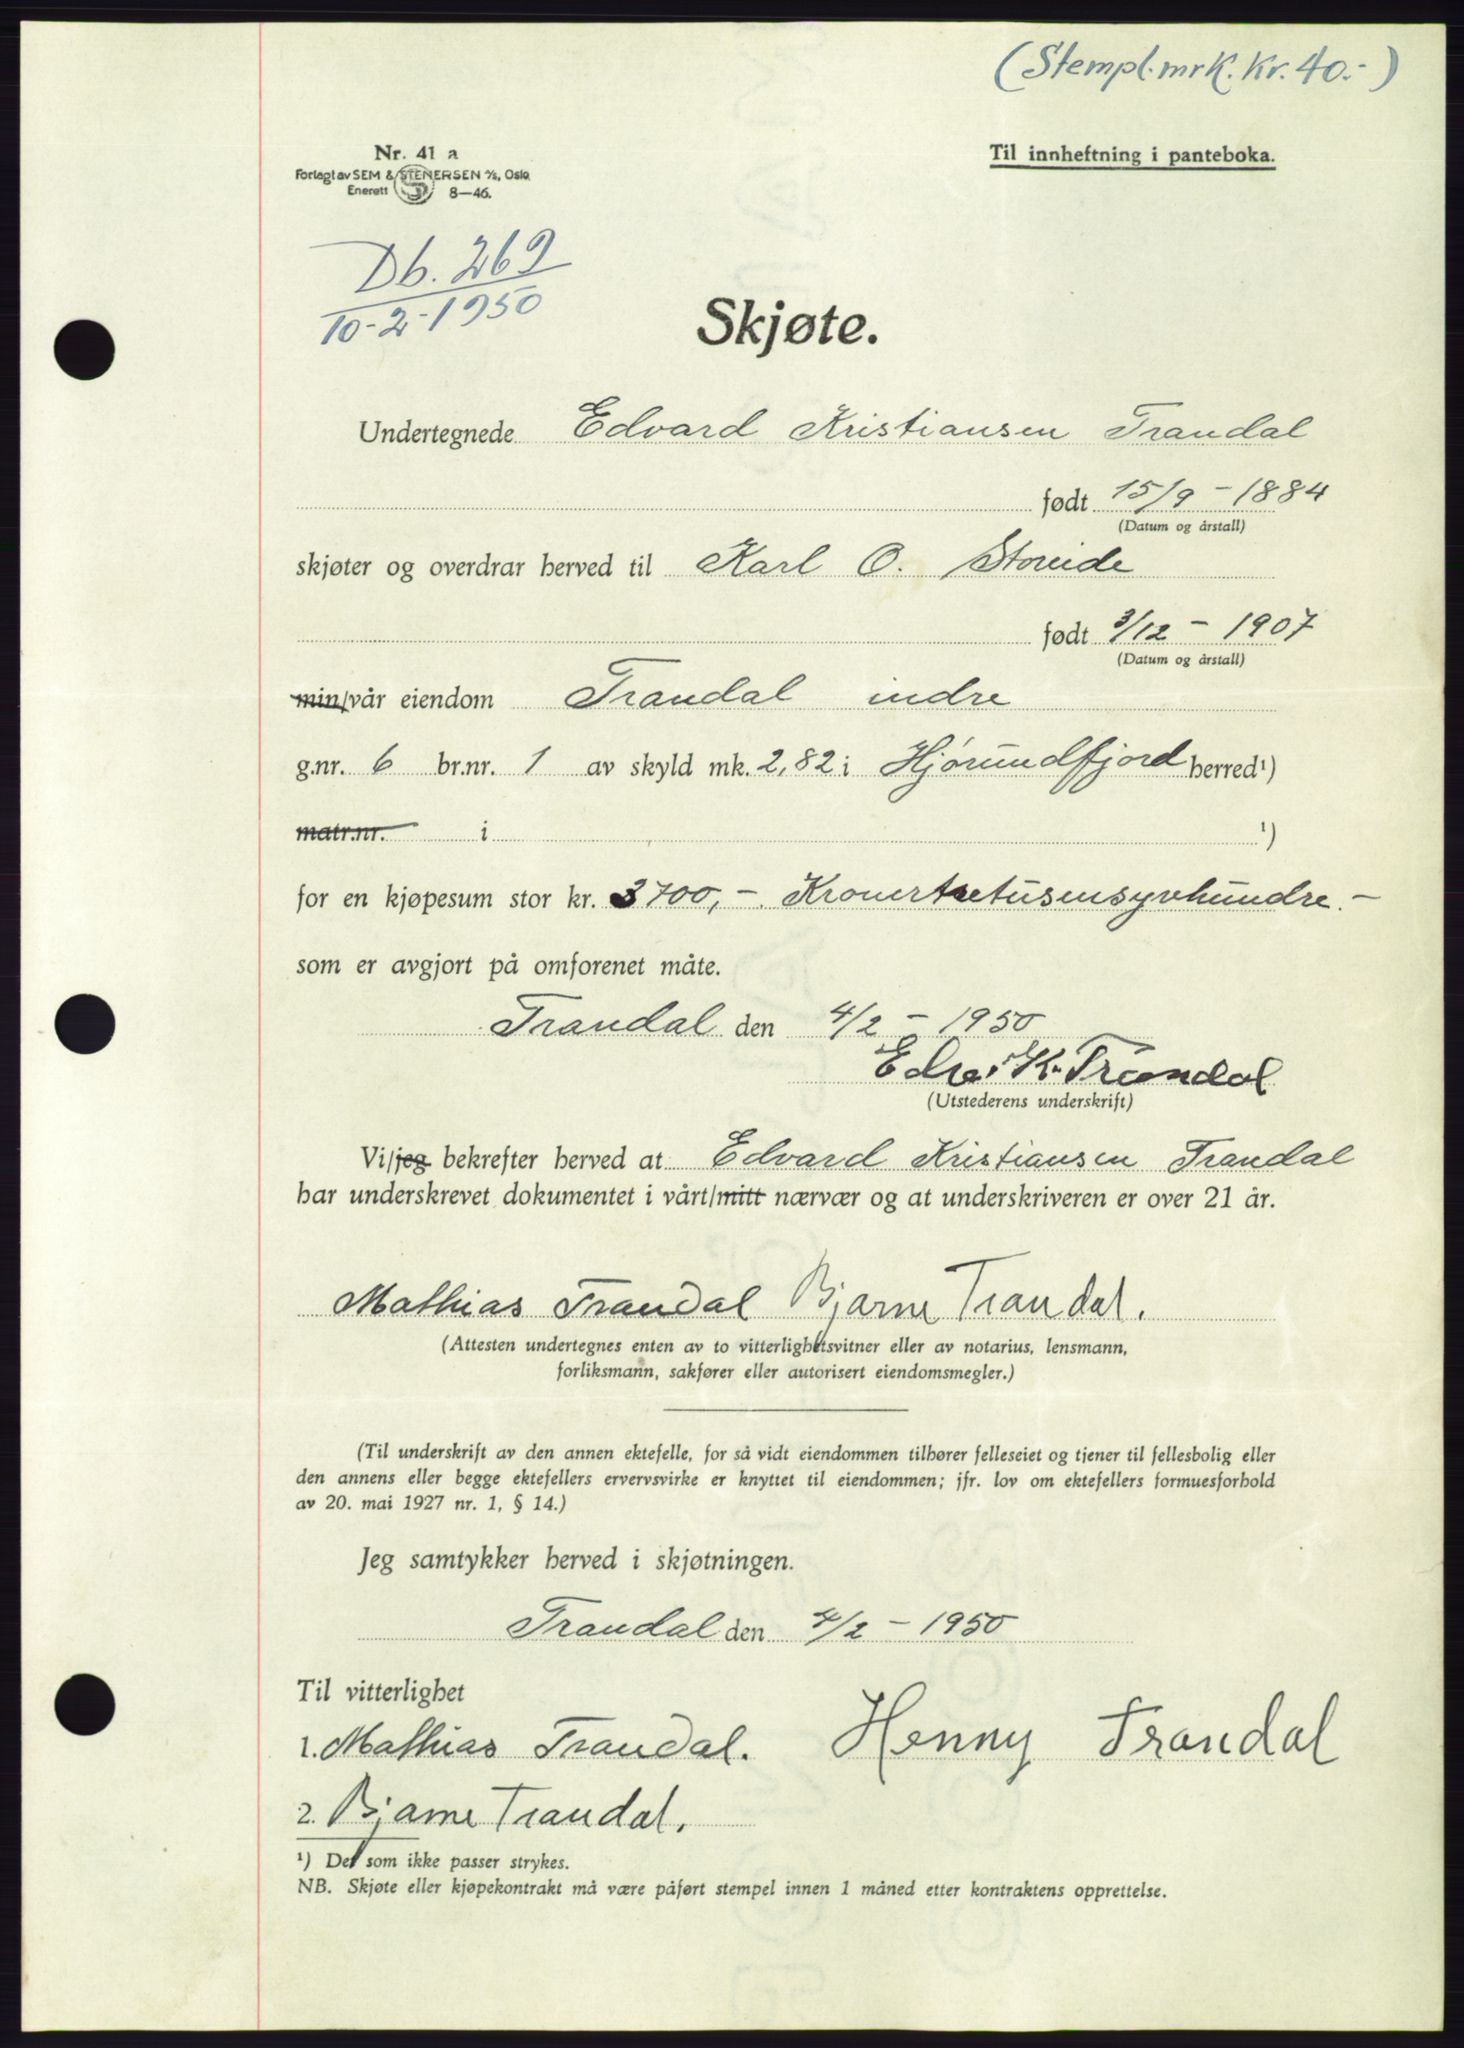 (Stempl.mrk. kr. 40.-)
Nr. 41 a
Forlagt av SEM & STENERSEN A/S, Oslo
Enerett 8—46.
Til innheftning i panteboka.
Db. 269
10-2-1950
Skjøte.
Undertegnede Edvard Kristiansen Trandal
født 15/9 - 1884
(Datum og årstall)
skjøter og overdrar herved til Karl O. Storeide
født 3/12 - 1907
(Datum og årstall)
min/vår eiendom Trandal indre
g.nr. 6 br.nr. 1 av skyld mk. 2,82 i Hjørundfjord herred¹)
matr.nr. i ¹)
for en kjøpesum stor kr. 3700,- Kronertretusensyvhundre.-
som er avgjort på omforenet måte.
Trandal den 4/2 - 1950
Edv. K. Trandal
(Utstederens underskrift)
Vi/jeg bekrefter herved at Edvard Kristiansen Trandal
har underskrevet dokumentet i vårt/mitt nærvær og at underskriveren er over 21 år.
Mathias Trandal Bjarne Trandal.
(Attesten undertegnes enten av to vitterlighetsvitner eller av notarius, lensmann,
forliksmann, sakfører eller autorisert eiendomsmegler.)
(Til underskrift av den annen ektefelle, for så vidt eiendommen tilhører felleseiet og tjener til fellesbolig eller
den annens eller begge ektefellers ervervsvirke er knyttet til eiendommen; jfr. lov om ektefellers formuesforhold
av 20. mai 1927 nr. 1, § 14.)
Jeg samtykker herved i skjøtningen.
Trandal den 4/2 - 1950
Til vitterlighet
1. Mathias Trandal. Henny Trandal
2. Bjarne Trandal.
¹) Det som ikke passer strykes.
NB. Skjøte eller kjøpekontrakt må være påført stempel innen 1 måned etter kontraktens opprettelse.